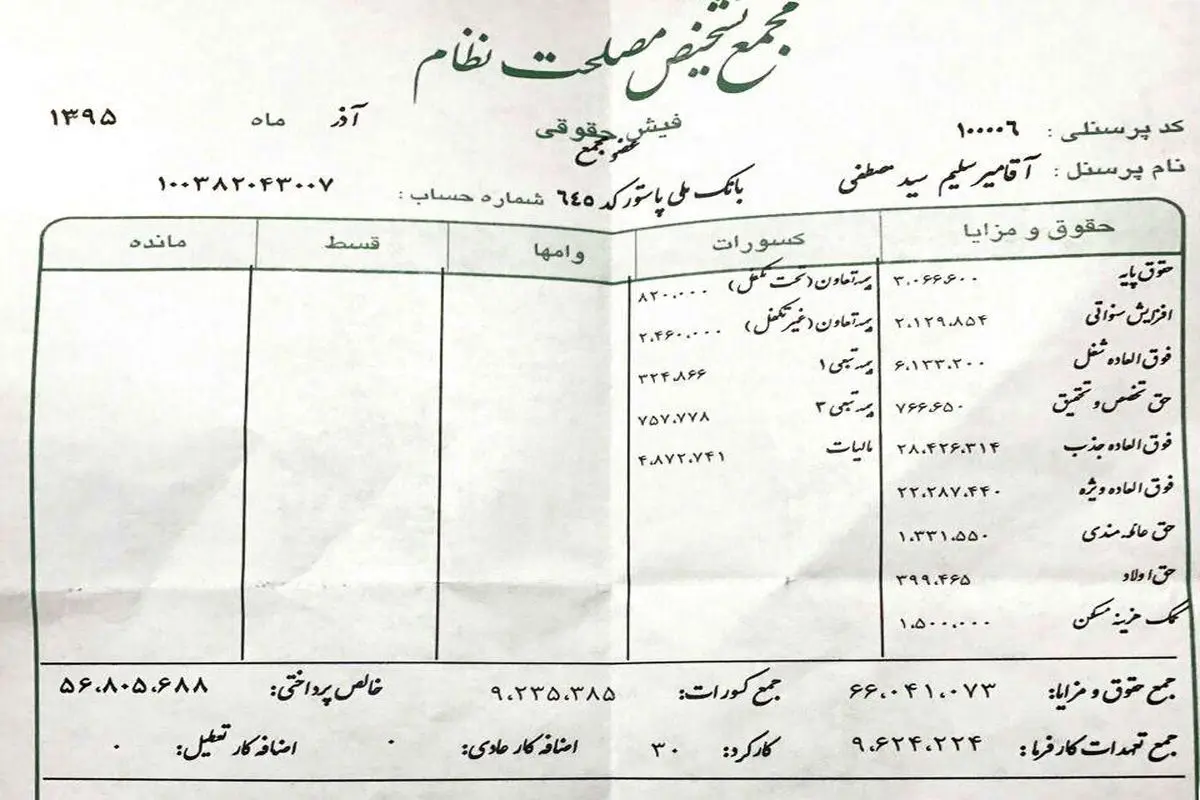 مجمع تشخیص مصلحت نظام
کد پرسنلی : ۱۰۰۰۰۶ فیش حقوقی آذر ماه ۱۳۹۵
عضو مجمع
نام پرسنل : آقامیرسلیم سید مصطفی بانک ملی پاستور کد ٦٤٥ شماره حساب : ۱۰۰۳۸۲۰۴۳۰۰۷
حقوق و مزایا کسورات وامها قسط مانده
حقوق پایه ۳،۰۶۶،۶۰۰ بیمه تعاون (تحت تکفل) ۸۲۰،۰۰۰
افزایش سنواتی ۲،۱۲۹،۸۵۴ بیمه تعاون (غیر تکفل) ۲،۴۶۰،۰۰۰
فوق العاده شغل ۶،۱۳۳،۲۰۰ بیمه تبعی ۱ ۳۲۴،۸۶۶
حق تخصص و تحقیق ۷۶۶،۶۵۰ بیمه تبعی ۳ ۷۵۷،۷۷۸
فوق العاده جذب ۲۸،۴۲۶،۳۱۴ مالیات ۴،۸۷۲،۷۴۱
فوق العاده ویژه ۲۲،۲۸۷،۴۴۰
حق عائله مندی ۱،۳۳۱،۵۵۰
حق اولاد ۳۹۹،۴۶۵
کمک هزینه مسکن ۱،۵۰۰،۰۰۰
جمع حقوق و مزایا: ۶۶،۰۴۱،۰۷۳ جمع کسورات: ۹،۲۳۵،۳۸۵ خالص پرداختی: ۵۶،۸۰۵،۶۸۸
جمع تعهدات کارفرما : ۹،۶۲۴،۲۲۴ کارکرد: ۳۰ اضافه کار عادی: ۰ اضافه کار تعطیل: ۰